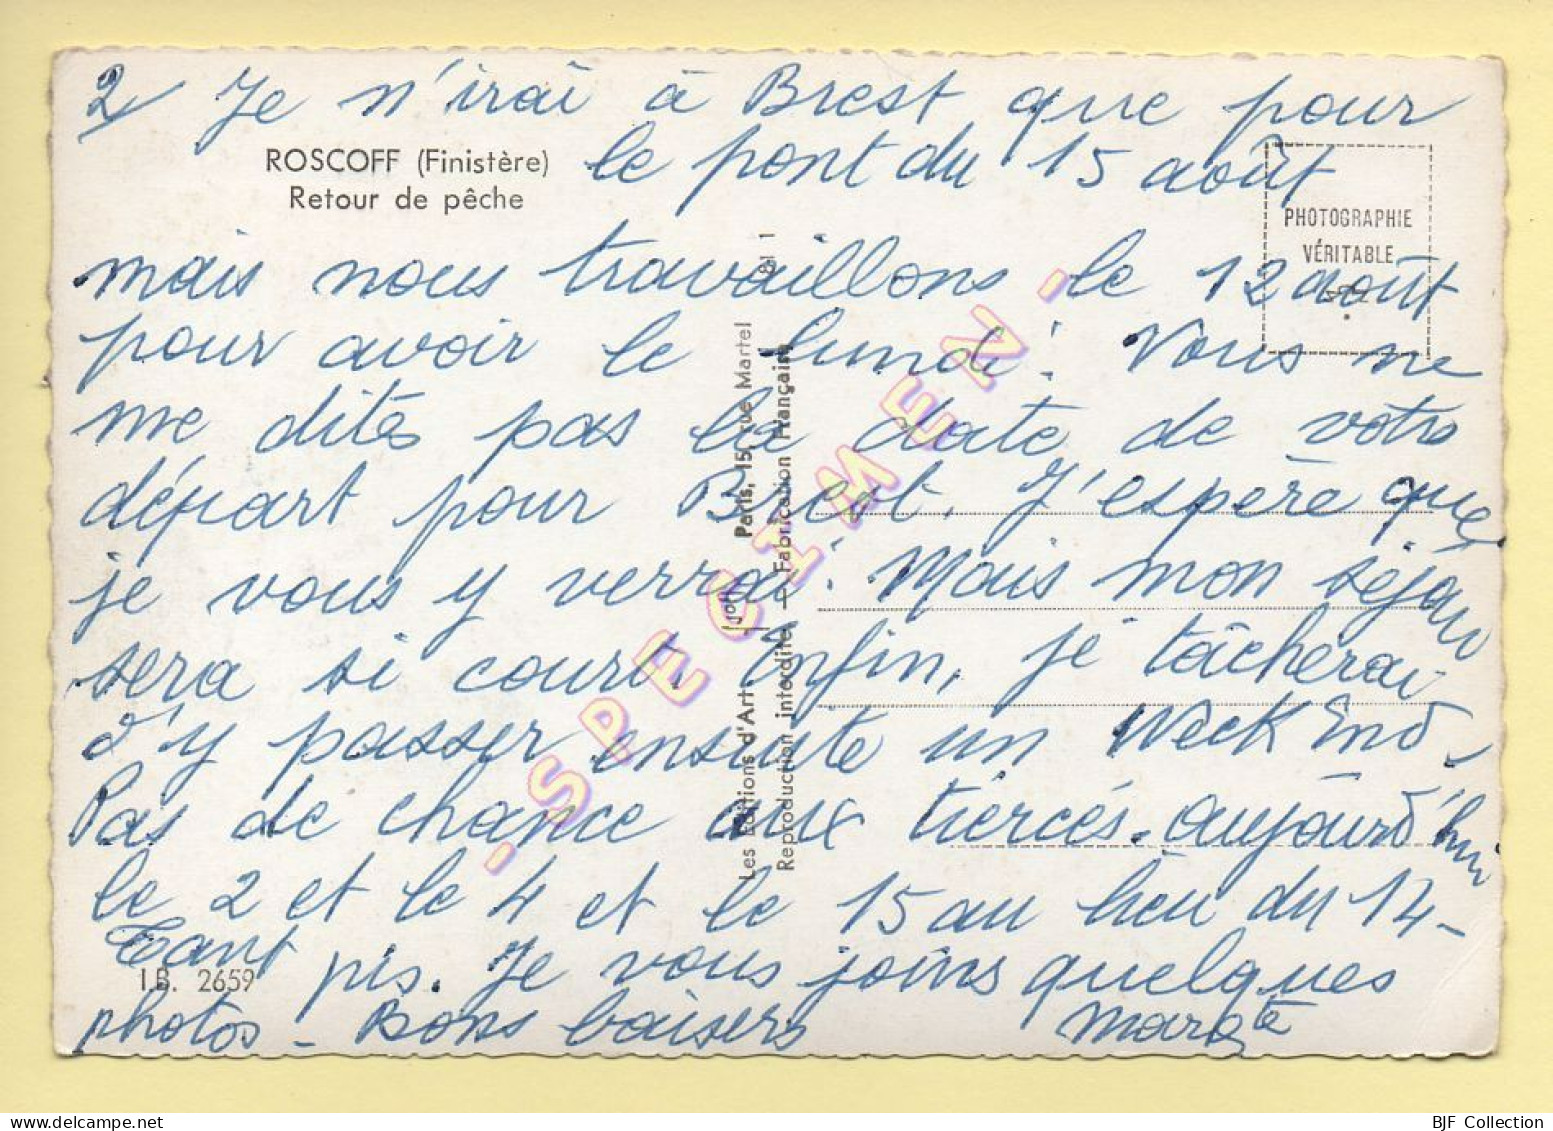 2/ Je n'irai à Brest que pour
ROSCOFF (Finistère)
Retour de pêche
le pont du 15 août
PHOTOGRAPHIE
VÉRITABLE
mais nous travaillons le 12 août
pour avoir le lundi. Vous ne
me dites pas la date de votre
départ pour Brest. J'espère que
je vous y verrai. Mais mon séjour
sera si court. Enfin, je tâcherai
d'y passer ensuite un Week End.
Pas de chance aux tiercés. aujourd'hui
le 2 et le 4 et le 15 au lieu du 14 -
Tant pis. Je vous joins quelques
I.B. 2659
photos - Bons baisers Margte
Les Editions d'Art Paris, 15, rue Martel 81 1
Reproduction interdite — Fabrication Française
- SPECIMEN -
BJF Collection